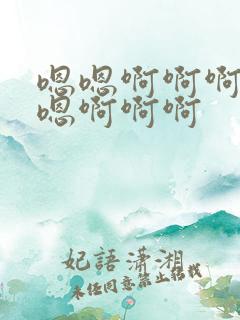 嗯嗯啊啊啊
嗯啊啊啊
妃語瀟湘
未经同意禁止转载